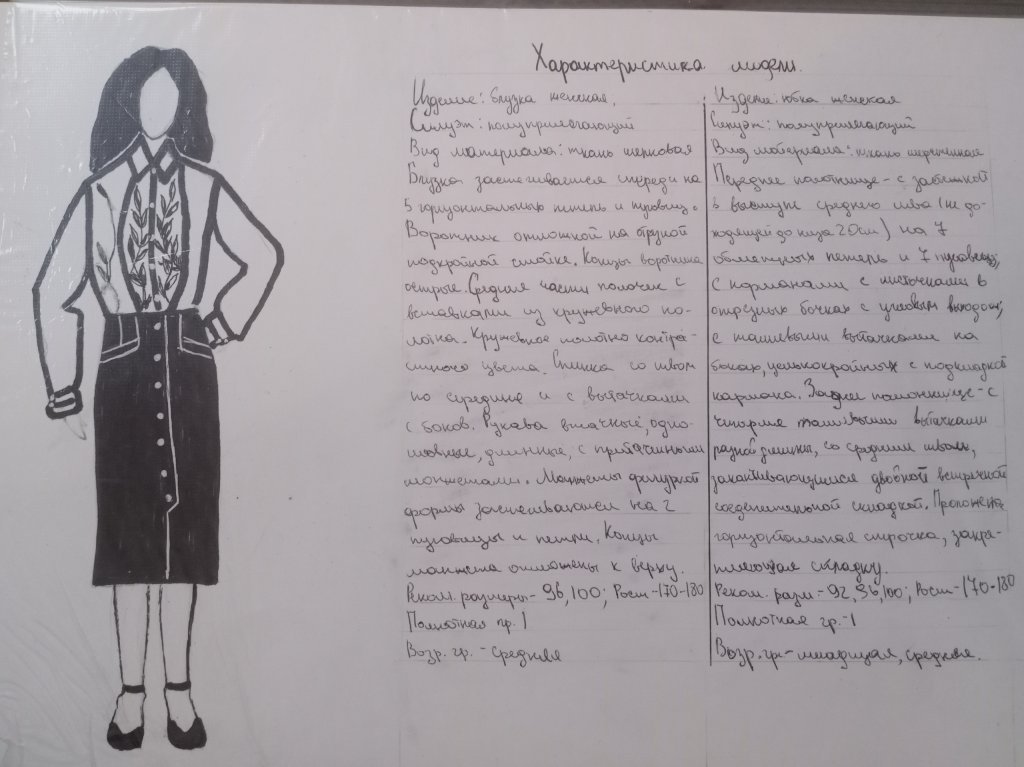 Характеристика модели.
Изделие: блузка женская.
Силуэт: полуприлегающий
Вид материала: ткань шелковая
Блузка застегивается спереди на
5 горизонтальных петель и пуговиц.
Воротник отложной на отрезной
подкройной стойке. Концы воротника
острые. Средняя часть полочек с
вставками из кружевного по-
лотна. Кружевное полотно контра-
стного цвета. Спинка со швом
по середине и с вытачками
с боков. Рукава втачные, одно-
шовные, длинные, с притачными
манжетами. Манжеты фигурной
формы застегиваются на 2
пуговицы и петли. Концы
манжета отложены к верху.
Реком. размеры - 96, 100; Рост - 170-180
Полнотная гр. 1
Возр. гр. - средняя
Изделие: юбка женская
Силуэт: полуприлегающий
Вид материала: ткань шерстяная
Переднее полотнище - с застежкой
в выступе среднего шва (не до-
ходящей до низа 20см) на 7
обметных петель и 7 пуговиц,
с карманами с листочками в
отрезных бочках с угловым выходом,
с талиевыми вытачками на
боках, цельнокройных с подкладкой
кармана. Заднее полотнище - с
четырьмя талиевыми вытачками
разной длины, со средним швом,
заканчивающимся двойной встречной
соединительной складкой. Проложена
горизонтальная строчка, закре-
пляющая складку.
Реком. разм - 92, 96, 100; Рост - 170-180
Полнотная гр. - 1
Возр. гр - младшая, средняя.